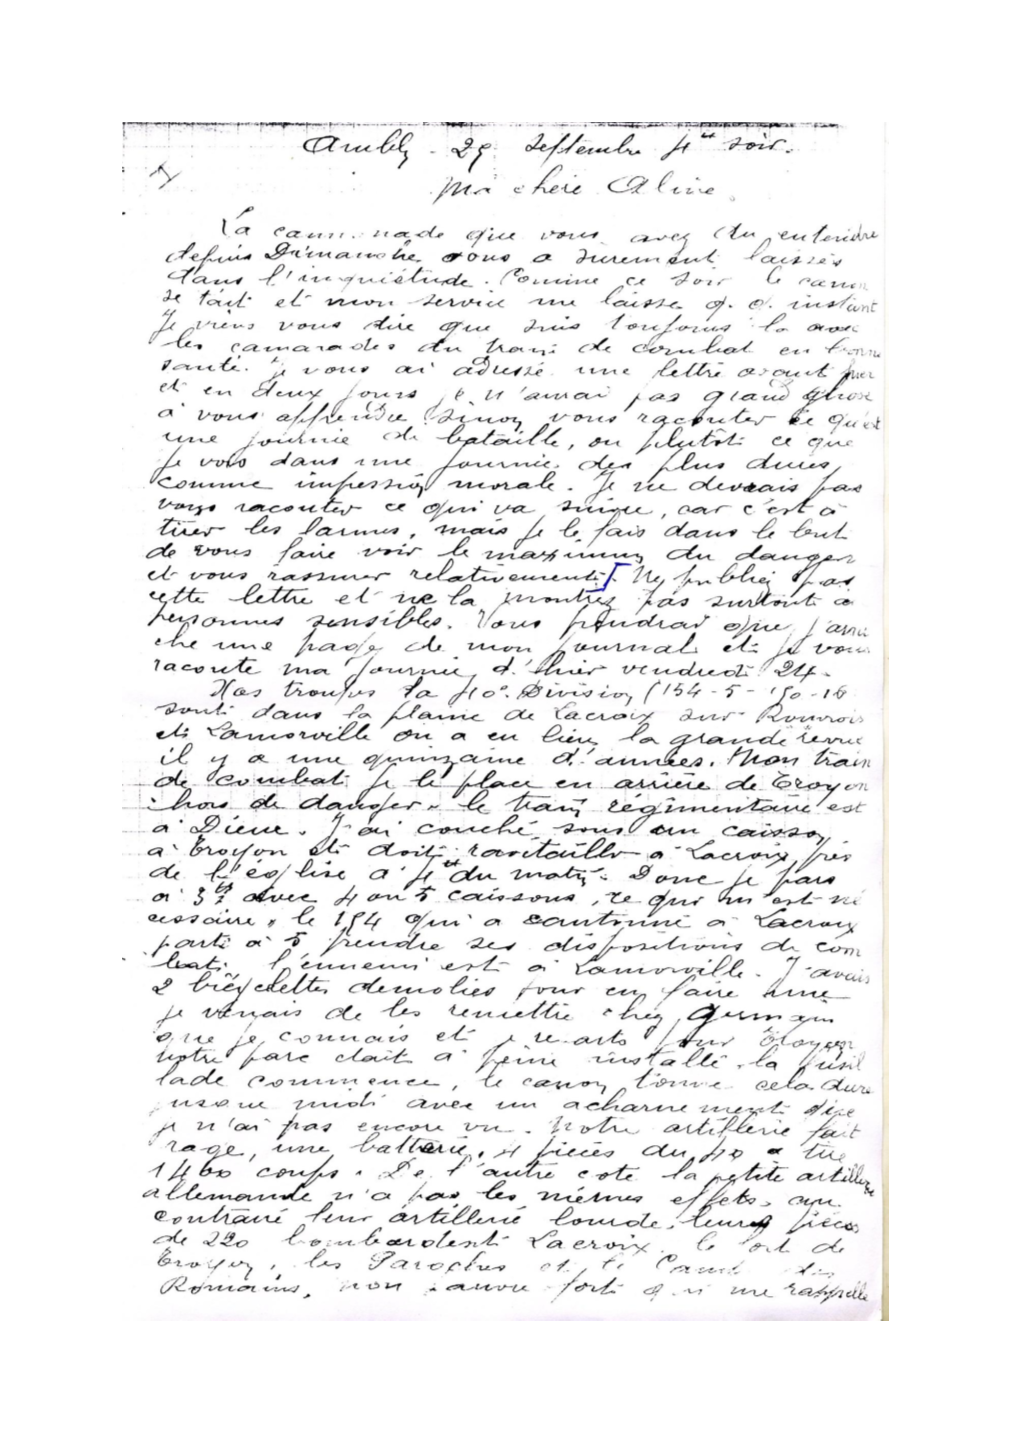 Ambly - 25 Septembre 4 h soir.
Ma chère Aline.
La cannonade que vous avez du entendre
depuis Dimanche vous a surement laissés
dans l'inquiétude. Comme ce soir le canon
se tait et mon service me laisse q. q. instant
Je viens vous dire que suis toujours là avec
les camarades du train de combat en bonne
santé. Je vous ai adressé une lettre avant hier
et en deux jours je n'aurai pas grand chose
à vous apprendre sinon vous raconter ce qu'est
une journée de bataille, ou plutôt ce que
je vois dans une journée des plus dures
comme impression morale. Je ne devrais pas
vous raconter ce qui va suivre, car c'est à
tirer les larmes, mais je le fais dans le but
de vous faire voir le maximum du danger
et vous rassurer relativement. Ne publiez pas
cette lettre et ne la montrez pas surtout à
personnes sensibles. Vous prendrai que j'arra
che une page de mon journal et je vous
raconte ma journée d'hier vendredi 24.
Nos troupes la 40e Division (154-5-150-16
sont dans la plaine de Lacroix sur Rouvrois
et Lamorville ou a eu lieu la grande revue
il y a une quinzaine d'années. Mon train
de combat je le place en arrière de Troyon
hors de danger. le train régimentaire est
à Dieue. J'ai couché sous un caisson
à Troyon et doit ravitailler à Lacroix près
de l'église à 4 h du matin. Donc je pars
à 3 h avec 4 ou 5 caissons, ce qui m'est né
cessaire. le 154 qui a cantonné à Lacroix
part à 5 prendre ses dispositions de com
bat. l'ennemi est à Lamorville. J'avais
2 bicyclettes démolies pour en faire une
je venais de les remettre chez Germain
que je connais et je repars pour Troyon
notre parc était à peine installé. la fusil
lade commence, le canon tonne cela dure
jusque midi avec un acharnement que
je n'ai pas encore vu. Notre artillerie fait
rage, une batterie, 4 pièces du 40 a tiré
1400 coups. De l'autre coté la petite artillerie
allemande n'a pas les mêmes effets, au
contraire leur artillerie lourde, leurs pièces
de 220 bombardent Lacroix, le fort de
Troyon, les Paroches et le Camp des
Romains, mon pauvre fort qui me rappelle